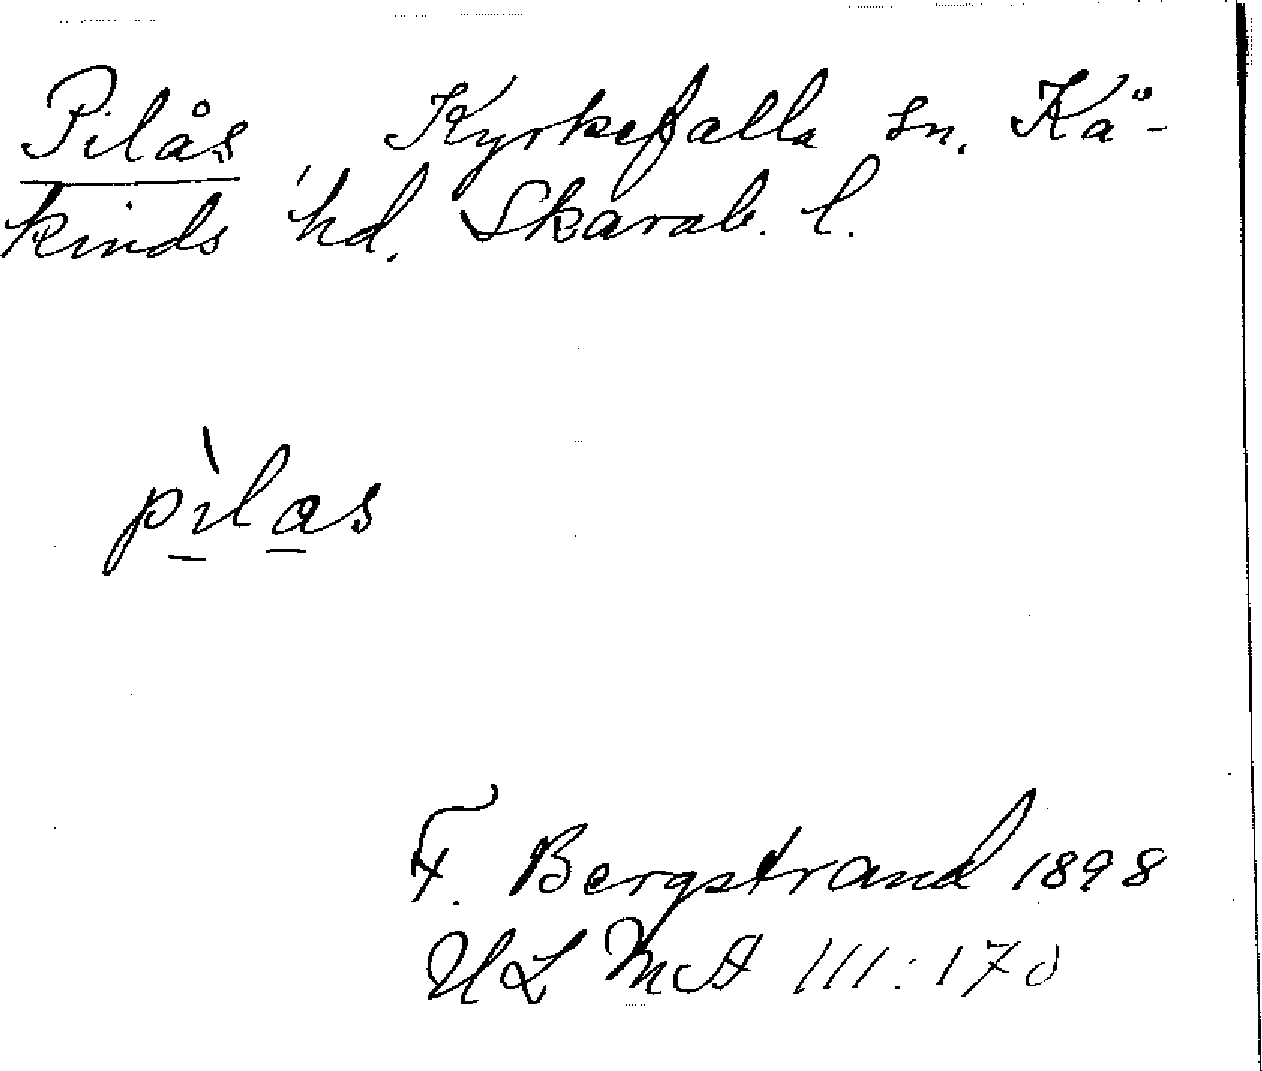 Pilås Kyrkefalla sn. Kå-
kinds hd. Skarab. l.
pìlas
F. Bergstrand 1898
ULMA 111:170